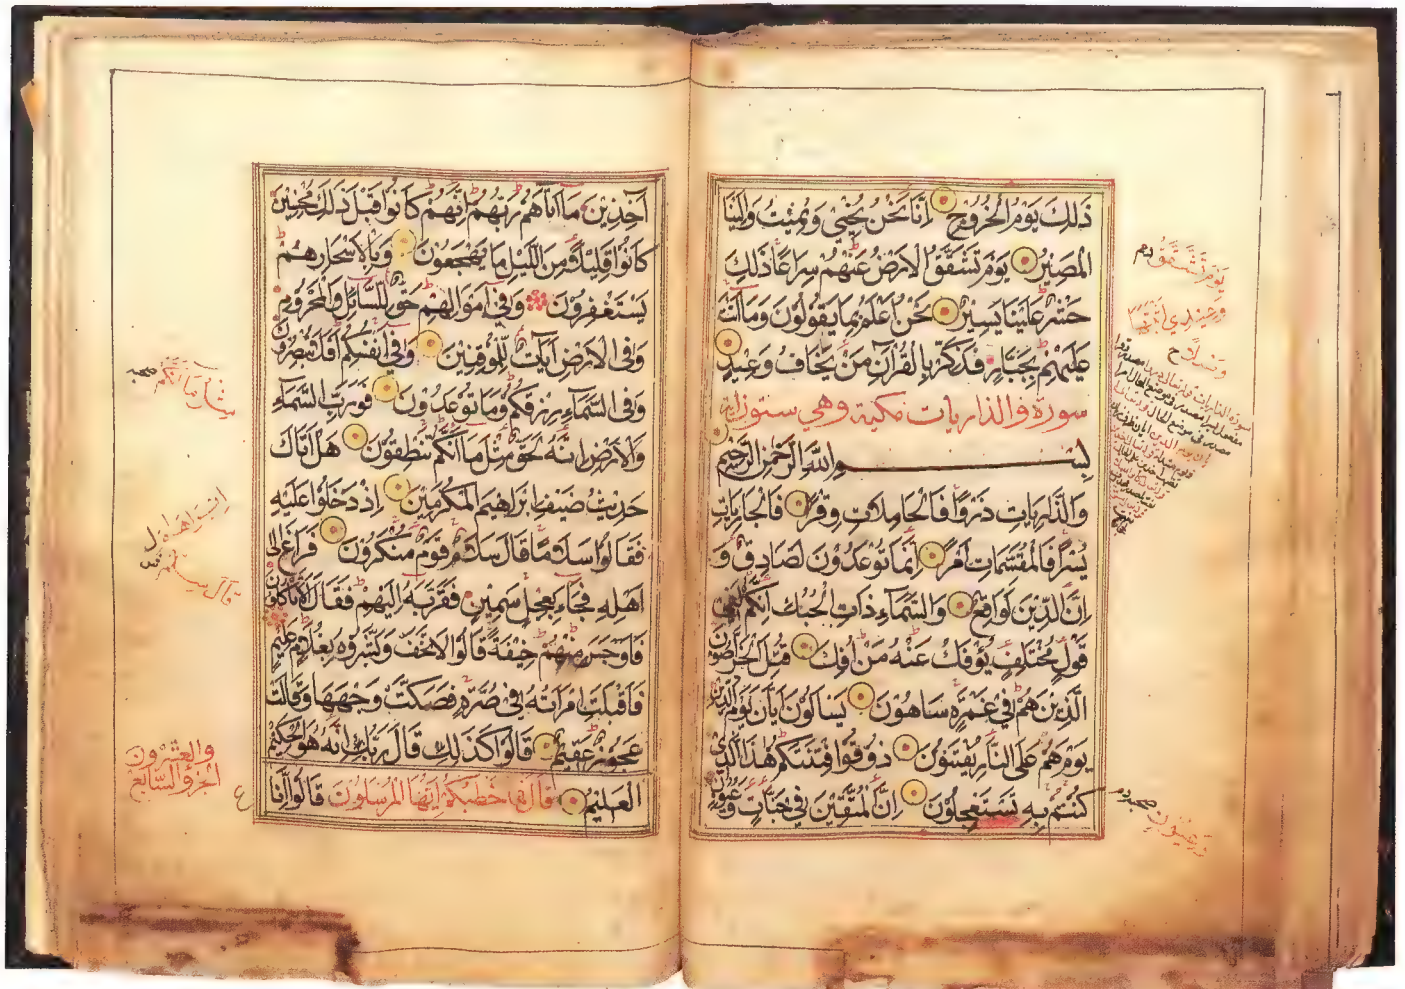 ذَلِكَ يَوْمُ الْخُرُوجِ اِنَّا نَحْنُ نُحْيِي وَنُمِيتُ وَاِلَيْنَا
الْمَصِيرُ يَوْمَ تَشَقَّقُ الْاَرْضُ عَنْهُمْ سِرَاعًا ذَلِكَ
حَشْرٌ عَلَيْنَا يَسِيرٌ نَحْنُ اَعْلَمُ بِمَا يَقُولُونَ وَمَا اَنْتَ
عَلَيْهِمْ بِجَبَّارٍ فَذَكِّرْ بِالْقُرْآنِ مَنْ يَخَافُ وَعِيدِ
سورة والذاريات مكية وهي ستون اية
بِسْمِ اللَّهِ الرَّحْمَنِ الرَّحِيمِ
وَالذَّارِيَاتِ ذَرْوًا فَالْحَامِلَاتِ وِقْرًا فَالْجَارِيَاتِ
يُسْرًا فَالْمُقَسِّمَاتِ اَمْرًا اِنَّمَا تُوعَدُونَ لَصَادِقٌ وَ
اِنَّ الدِّينَ لَوَاقِعٌ وَالسَّمَاءِ ذَاتِ الْحُبُكِ اِنَّكُمْ لَفِي
قَوْلٍ مُخْتَلِفٍ يُؤْفَكُ عَنْهُ مَنْ اُفِكَ قُتِلَ الْخَرَّاصُونَ
الَّذِينَ هُمْ فِي غَمْرَةٍ سَاهُونَ يَسْأَلُونَ اَيَّانَ يَوْمُ الدِّينِ
يَوْمَ هُمْ عَلَى النَّارِ يُفْتَنُونَ ذُوقُوا فِتْنَتَكُمْ هَذَا الَّذِي
كُنْتُمْ بِهِ تَسْتَعْجِلُونَ اِنَّ الْمُتَّقِينَ فِي جَنَّاتٍ وَعُيُونٍ
يَوْمَ تَشَّقَّقُ
وَعُيُونٍ
آخِذِينَ مَا آتَاهُمْ رَبُّهُمْ اِنَّهُمْ كَانُوا قَبْلَ ذَلِكَ مُحْسِنِينَ
كَانُوا قَلِيلًا مِنَ اللَّيْلِ مَا يَهْجَعُونَ وَبِالْاَسْحَارِ هُمْ
يَسْتَغْفِرُونَ وَفِي اَمْوَالِهِمْ حَقٌّ لِلسَّائِلِ وَالْمَحْرُومِ
وَفِي الْاَرْضِ آيَاتٌ لِلْمُوقِنِينَ وَفِي اَنْفُسِكُمْ اَفَلَا تُبْصِرُونَ
وَفِي السَّمَاءِ رِزْقُكُمْ وَمَا تُوعَدُونَ فَوَرَبِّ السَّمَاءِ
وَالْاَرْضِ اِنَّهُ لَحَقٌّ مِثْلَ مَا اَنَّكُمْ تَنْطِقُونَ هَلْ اَتَاكَ
حَدِيثُ ضَيْفِ اِبْرَاهِيمَ الْمُكْرَمِينَ اِذْ دَخَلُوا عَلَيْهِ
فَقَالُوا سَلَامًا قَالَ سَلَامٌ قَوْمٌ مُنْكَرُونَ فَرَاغَ اِلَى
اَهْلِهِ فَجَاءَ بِعِجْلٍ سَمِينٍ فَقَرَّبَهُ اِلَيْهِمْ فَقَالَ اَلَا تَأْكُلُونَ
فَاَوْجَسَ مِنْهُمْ خِيفَةً قَالُوا لَا تَخَفْ وَبَشَّرُوهُ بِغُلَامٍ عَلِيمٍ
فَاَقْبَلَتِ امْرَاَتُهُ فِي صَرَّةٍ فَصَكَّتْ وَجْهَهَا وَقَالَتْ
عَجُوزٌ عَقِيمٌ قَالُوا كَذَلِكِ قَالَ رَبُّكِ اِنَّهُ هُوَ الْحَكِيمُ
الْعَلِيمُ قَالَ فَمَا خَطْبُكُمْ اَيُّهَا الْمُرْسَلُونَ قَالُوا اِنَّا
والعشرون
الجزؤ السابع